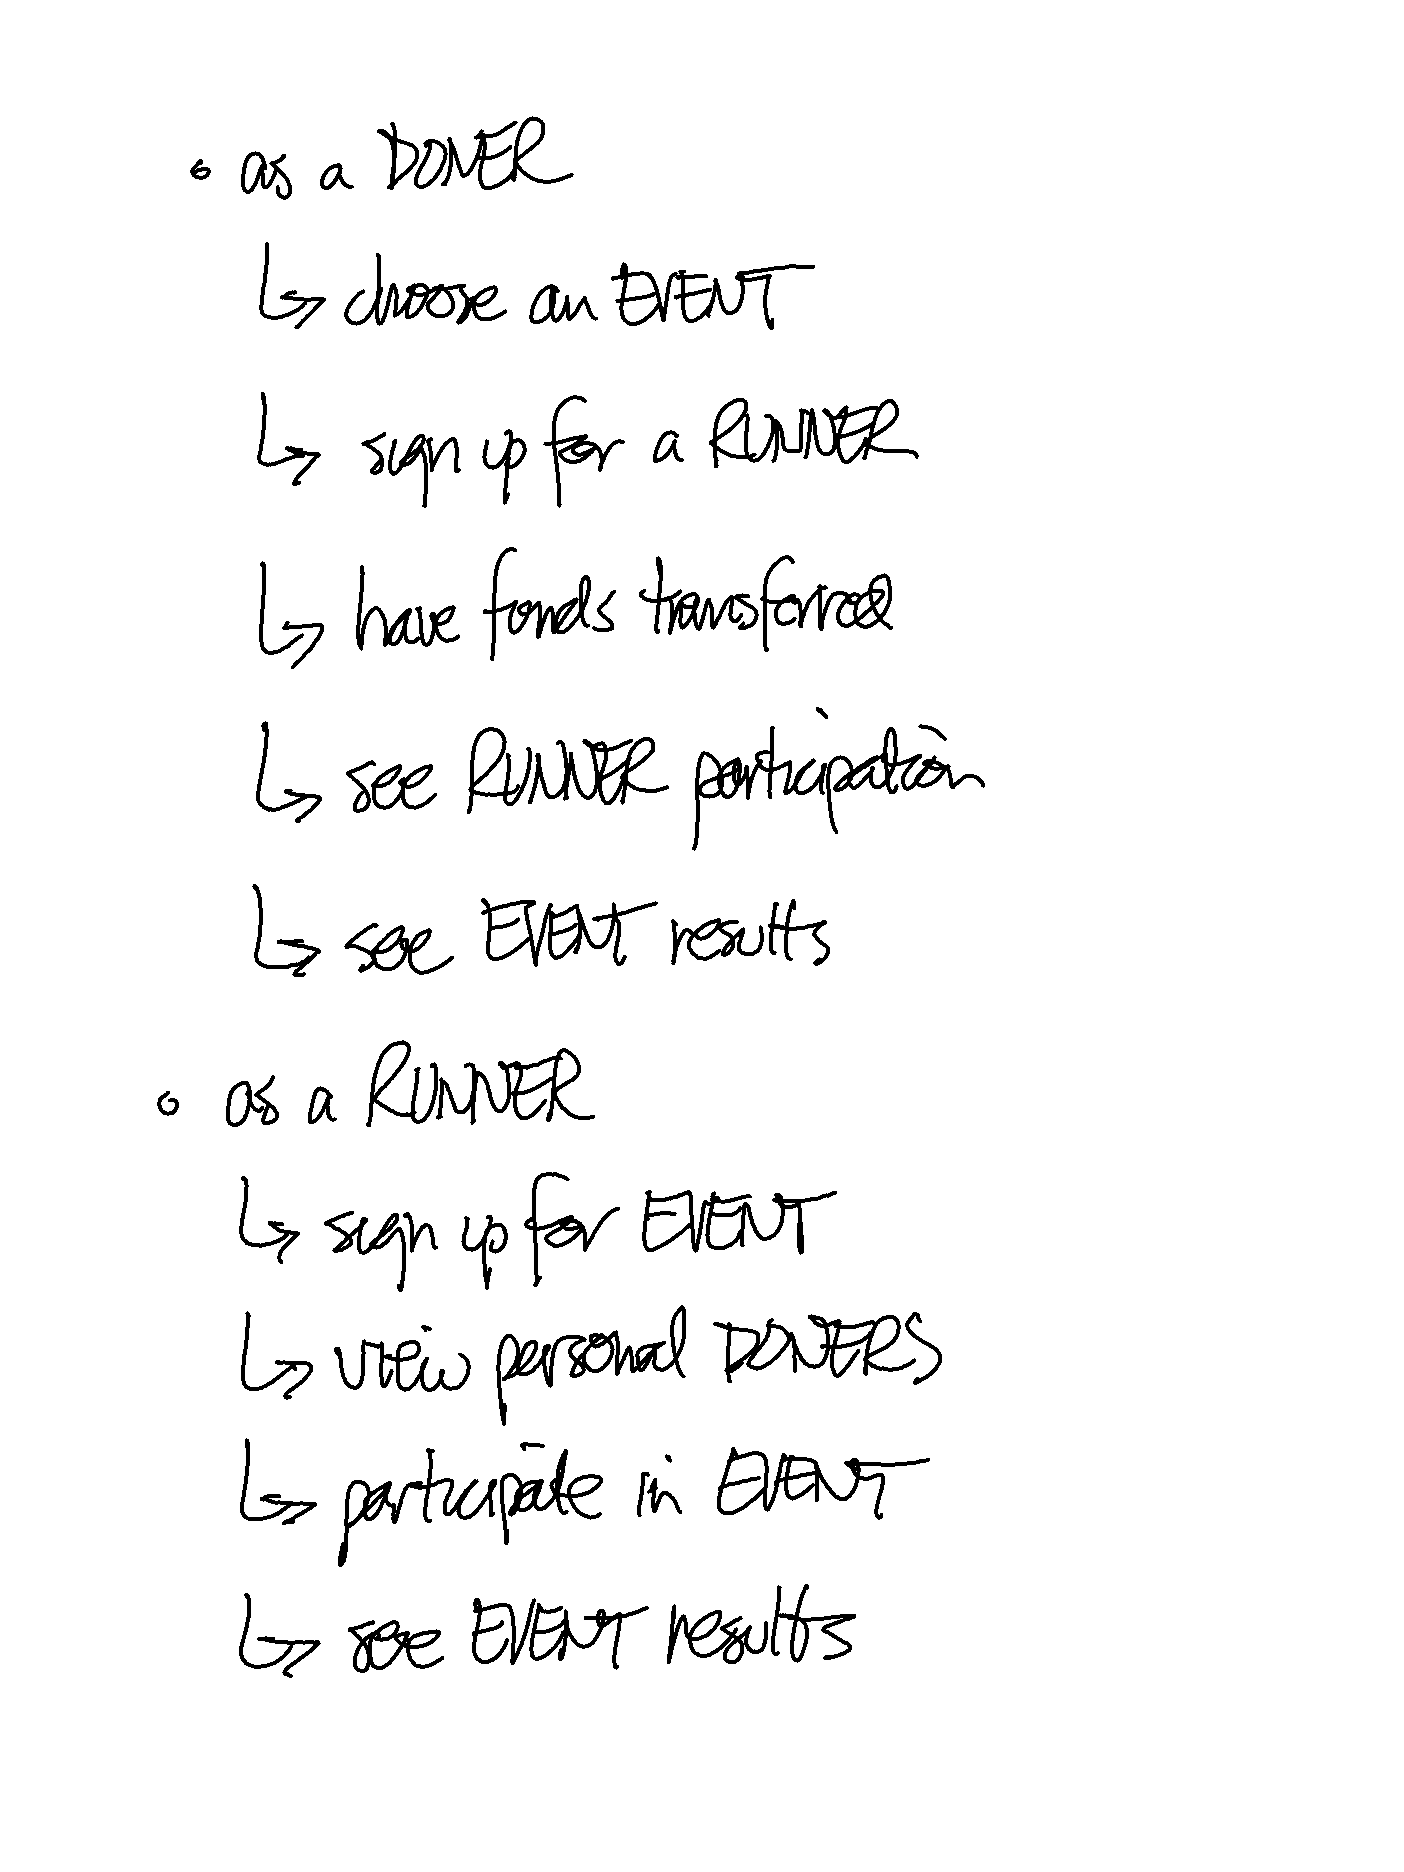 • as a DONER
↳ choose an EVENT
↳ sign up for a RUNNER
↳ have fonds transferred
↳ see RUNNER participation
↳ see EVENT results
• as a RUNNER
↳ sign up for EVENT
↳ view personal DONERS
↳ participate in EVENT
↳ see EVENT results